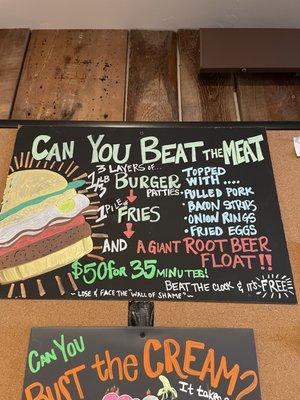 CAN YOU BEAT THE MEAT
3 LAYERS OF...
1/3 LB BURGER PATTIES
1 PILE FRIES
TOPPED
WITH....
• PULLED PORK
• BACON STRIPS
• ONION RINGS
• FRIED EGGS
AND A GIANT ROOT BEER
FLOAT!!
$50 FOR 35 MINUTES!
BEAT THE CLOCK & IT'S FREE
~ LOSE & FACE THE "WALL OF SHAME" ~
CAN YOU
BUST THE CREAM?
It takes